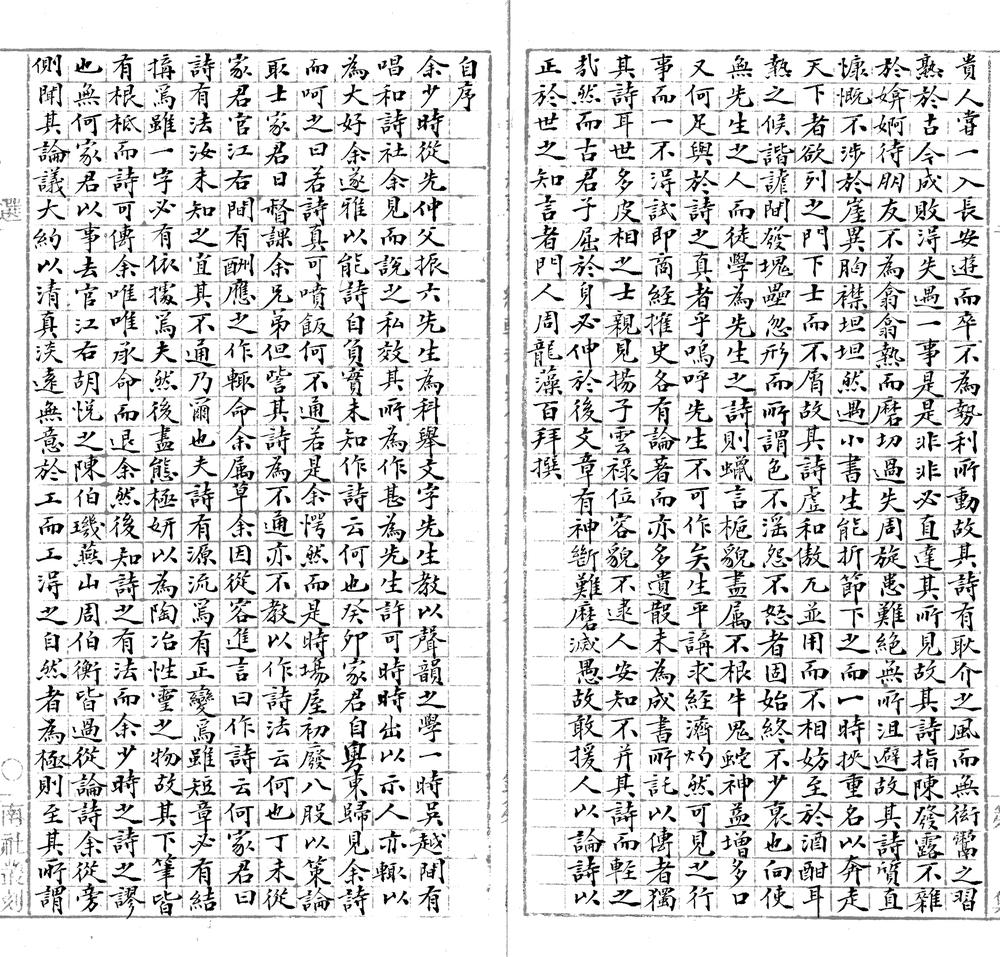 貴人嘗一入長安遊而卒不為勢利所動故其詩有耿介之風而無衒鬻之習
熟於古今成敗得失遇一事是是非非必直達其所見故其詩指陳發露不雜
於媕婀待朋友不為翕翕熱而磨切過失周旋患難絕無所沮避故其詩質直
慷慨不涉於崖異胸襟坦坦然遇小書生能折節下之而一時挾重名以奔走
天下者欲列之門下士而不屑故其詩虛和傲兀並用而不相妨至於酒酣耳
熱之候諧謔間發塊壘忽形而所謂色不滛怨不怒者固始終不少衷也向使
無先生之人而徒學為先生之詩則蠟言梔貌盡属不根牛鬼蛇神益增多口
又何足與於詩之真者乎嗚呼先生不可作矣生平講求經濟灼然可見之行
事而一不得試即商經搉史各有論著而亦多遺散未為成書所託以傳者獨
其詩耳世多皮相之士親見揚子雲祿位容貌不逮人安知不并其詩而輕之
㢤然而古君子屈於身必伸於後文章有神斷難磨滅愚故敢援人以論詩以
正於世之知言者門人周龍藻百拜撰
自序
余少時從先仲父振六先生為科舉文字先生教以聲韻之學一時吳越間有
唱和詩社余見而說之私效其所為作甚為先生許可時時出以示人亦輒以
為大好余遂雅以能詩自負實未知作詩云何也癸卯家君自粵東歸見余詩
而呵之曰若詩真可噴飯何不通若是余愕然而是時場屋初廢八股以策論
取士家君日督課余兄弟但訾其詩為不通亦不教以作詩法云何也丁未從
家君官江右間有酬應之作輒命余属草余因從容進言曰作詩云何家君曰
詩有法汝未知之宜其不通乃爾也夫詩有源流焉有正變焉雖短章必有結
搆焉雖一字必有依據焉夫然後盡態極妍以為陶冶性靈之物故其下筆皆
有根柢而詩可傳余唯唯承命而退余然後知詩之有法而余少時之詩之謬
也無何家君以事去官江右胡悅之陳伯璣燕山周伯衡皆過從論詩余從旁
側聞其論議大約以清真淡遠無意於工而工得之自然者為極則至其所謂
選
南社叢刻